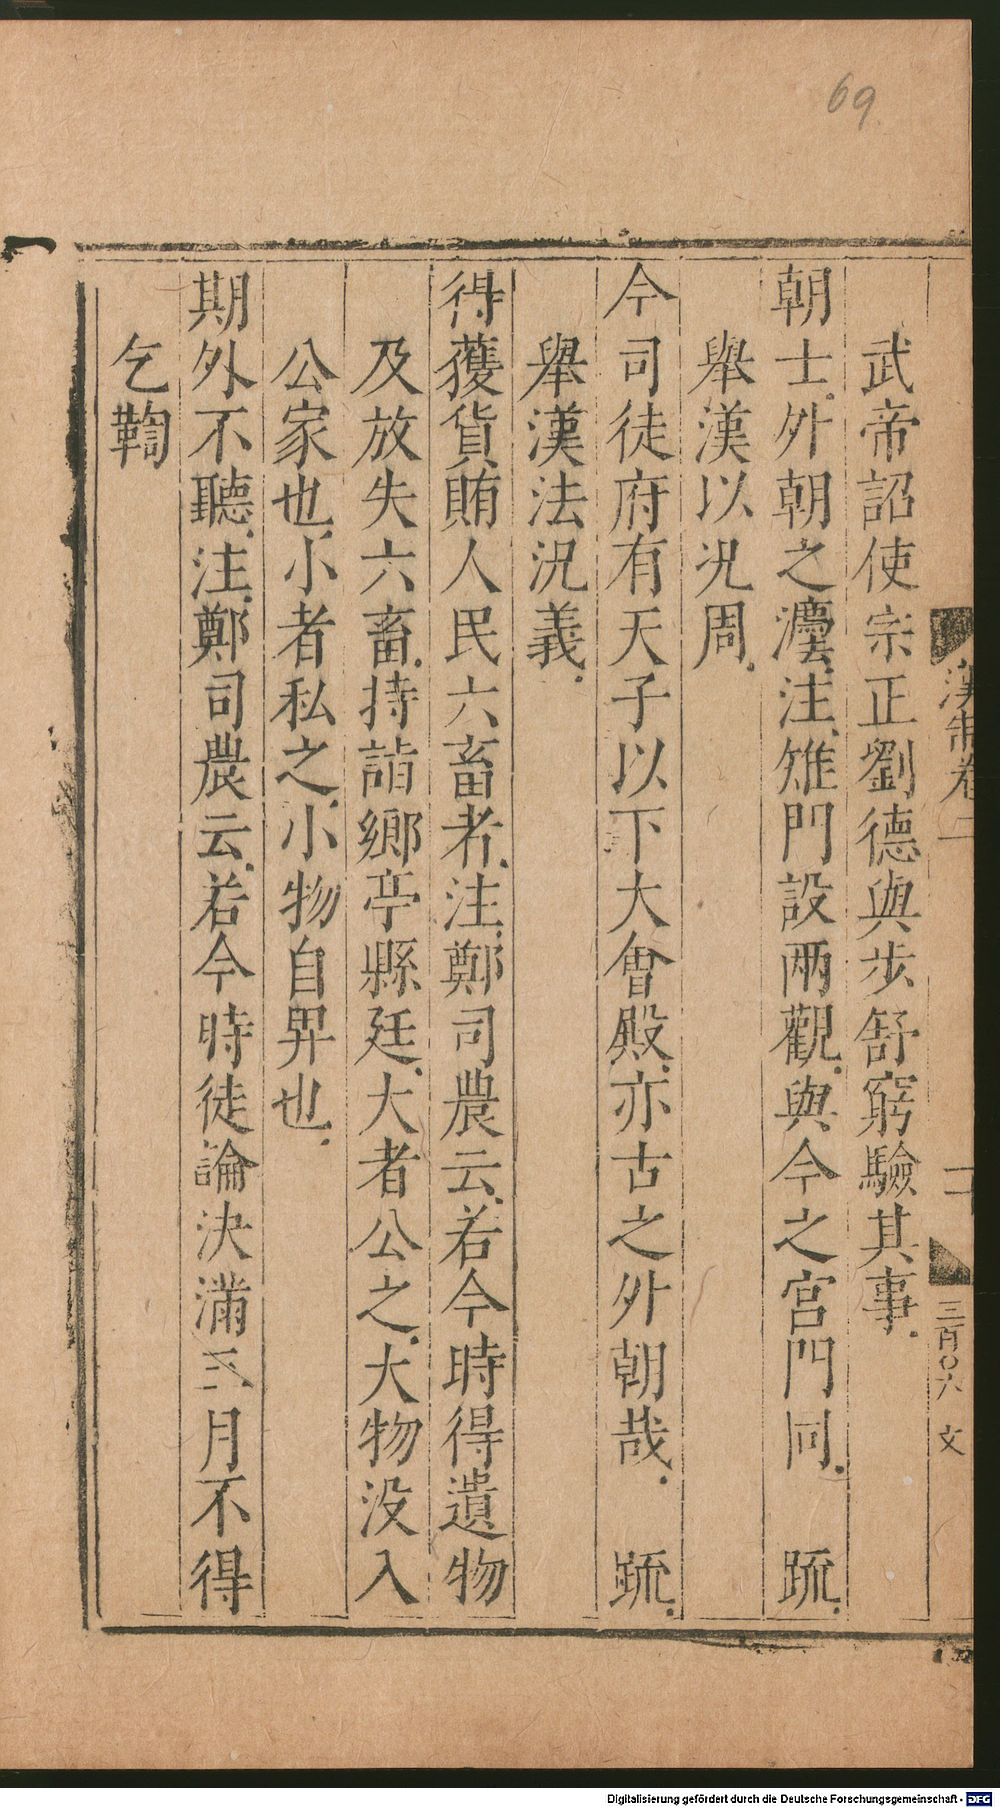 69
漢制卷二
十一
三百〇六 文
武帝詔使宗正劉德與步舒窮驗其事
朝士外朝之灋注雉門設兩觀與今之宮門同 䟽
舉漢以况周
今司徒府有天子以下大會殿亦古之外朝哉 䟽
舉漢法况義
得獲貨賄人民六畜者注鄭司農云若今時得遺物
及放失六畜持詣鄉亭縣廷大者公之大物没入
公家也小者私之小物自畀也
期外不聽注鄭司農云若今時徒論決滿三月不得
乞鞫
Digitalisierung gefördert durch die Deutsche Forschungsgemeinschaft - DFG